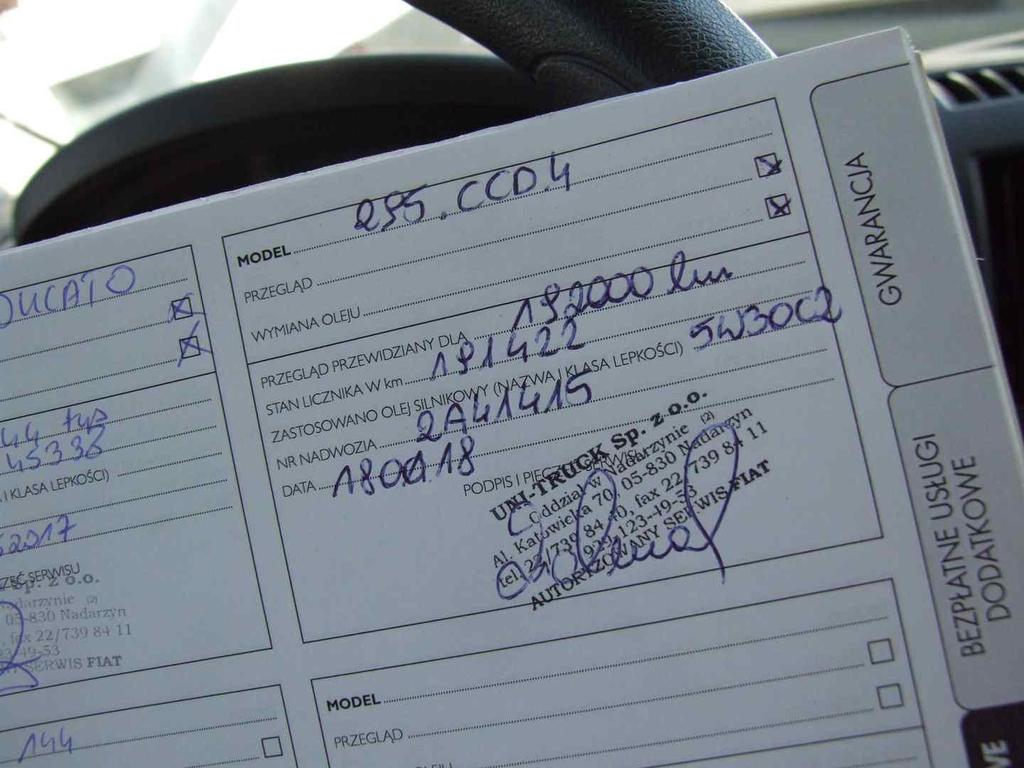 DUCATO
44 typ
45336
I KLASA LEPKOŚCI)
2017
SERWISU
Sp. z o.o.
Nadarzynie (2)
05-830 Nadarzyn
fax 22/739 84 11
49-53
SERWIS FIAT
144
MODEL 295.CCD.4
PRZEGLĄD
WYMIANA OLEJU
PRZEGLĄD PRZEWIDZIANY DLA 192000 km
STAN LICZNIKA W km 191422
ZASTOSOWANO OLEJ SILNIKOWY (NAZWA I KLASA LEPKOŚCI) 5W30C2
NR NADWOZIA 2A41415
DATA 180118
PODPIS I PIECZĘĆ SERWISU
UNI-TRUCK Sp. z o.o.
Oddział w Nadarzynie (2)
Al. Katowicka 70, 05-830 Nadarzyn
tel. 22/739 84 10, fax 22 739 84 11
123-49-53
AUTORYZOWANY SERWIS FIAT
MODEL
PRZEGLĄD
OLEJU
GWARANCJA
BEZPŁATNE USŁUGI
DODATKOWE
WE